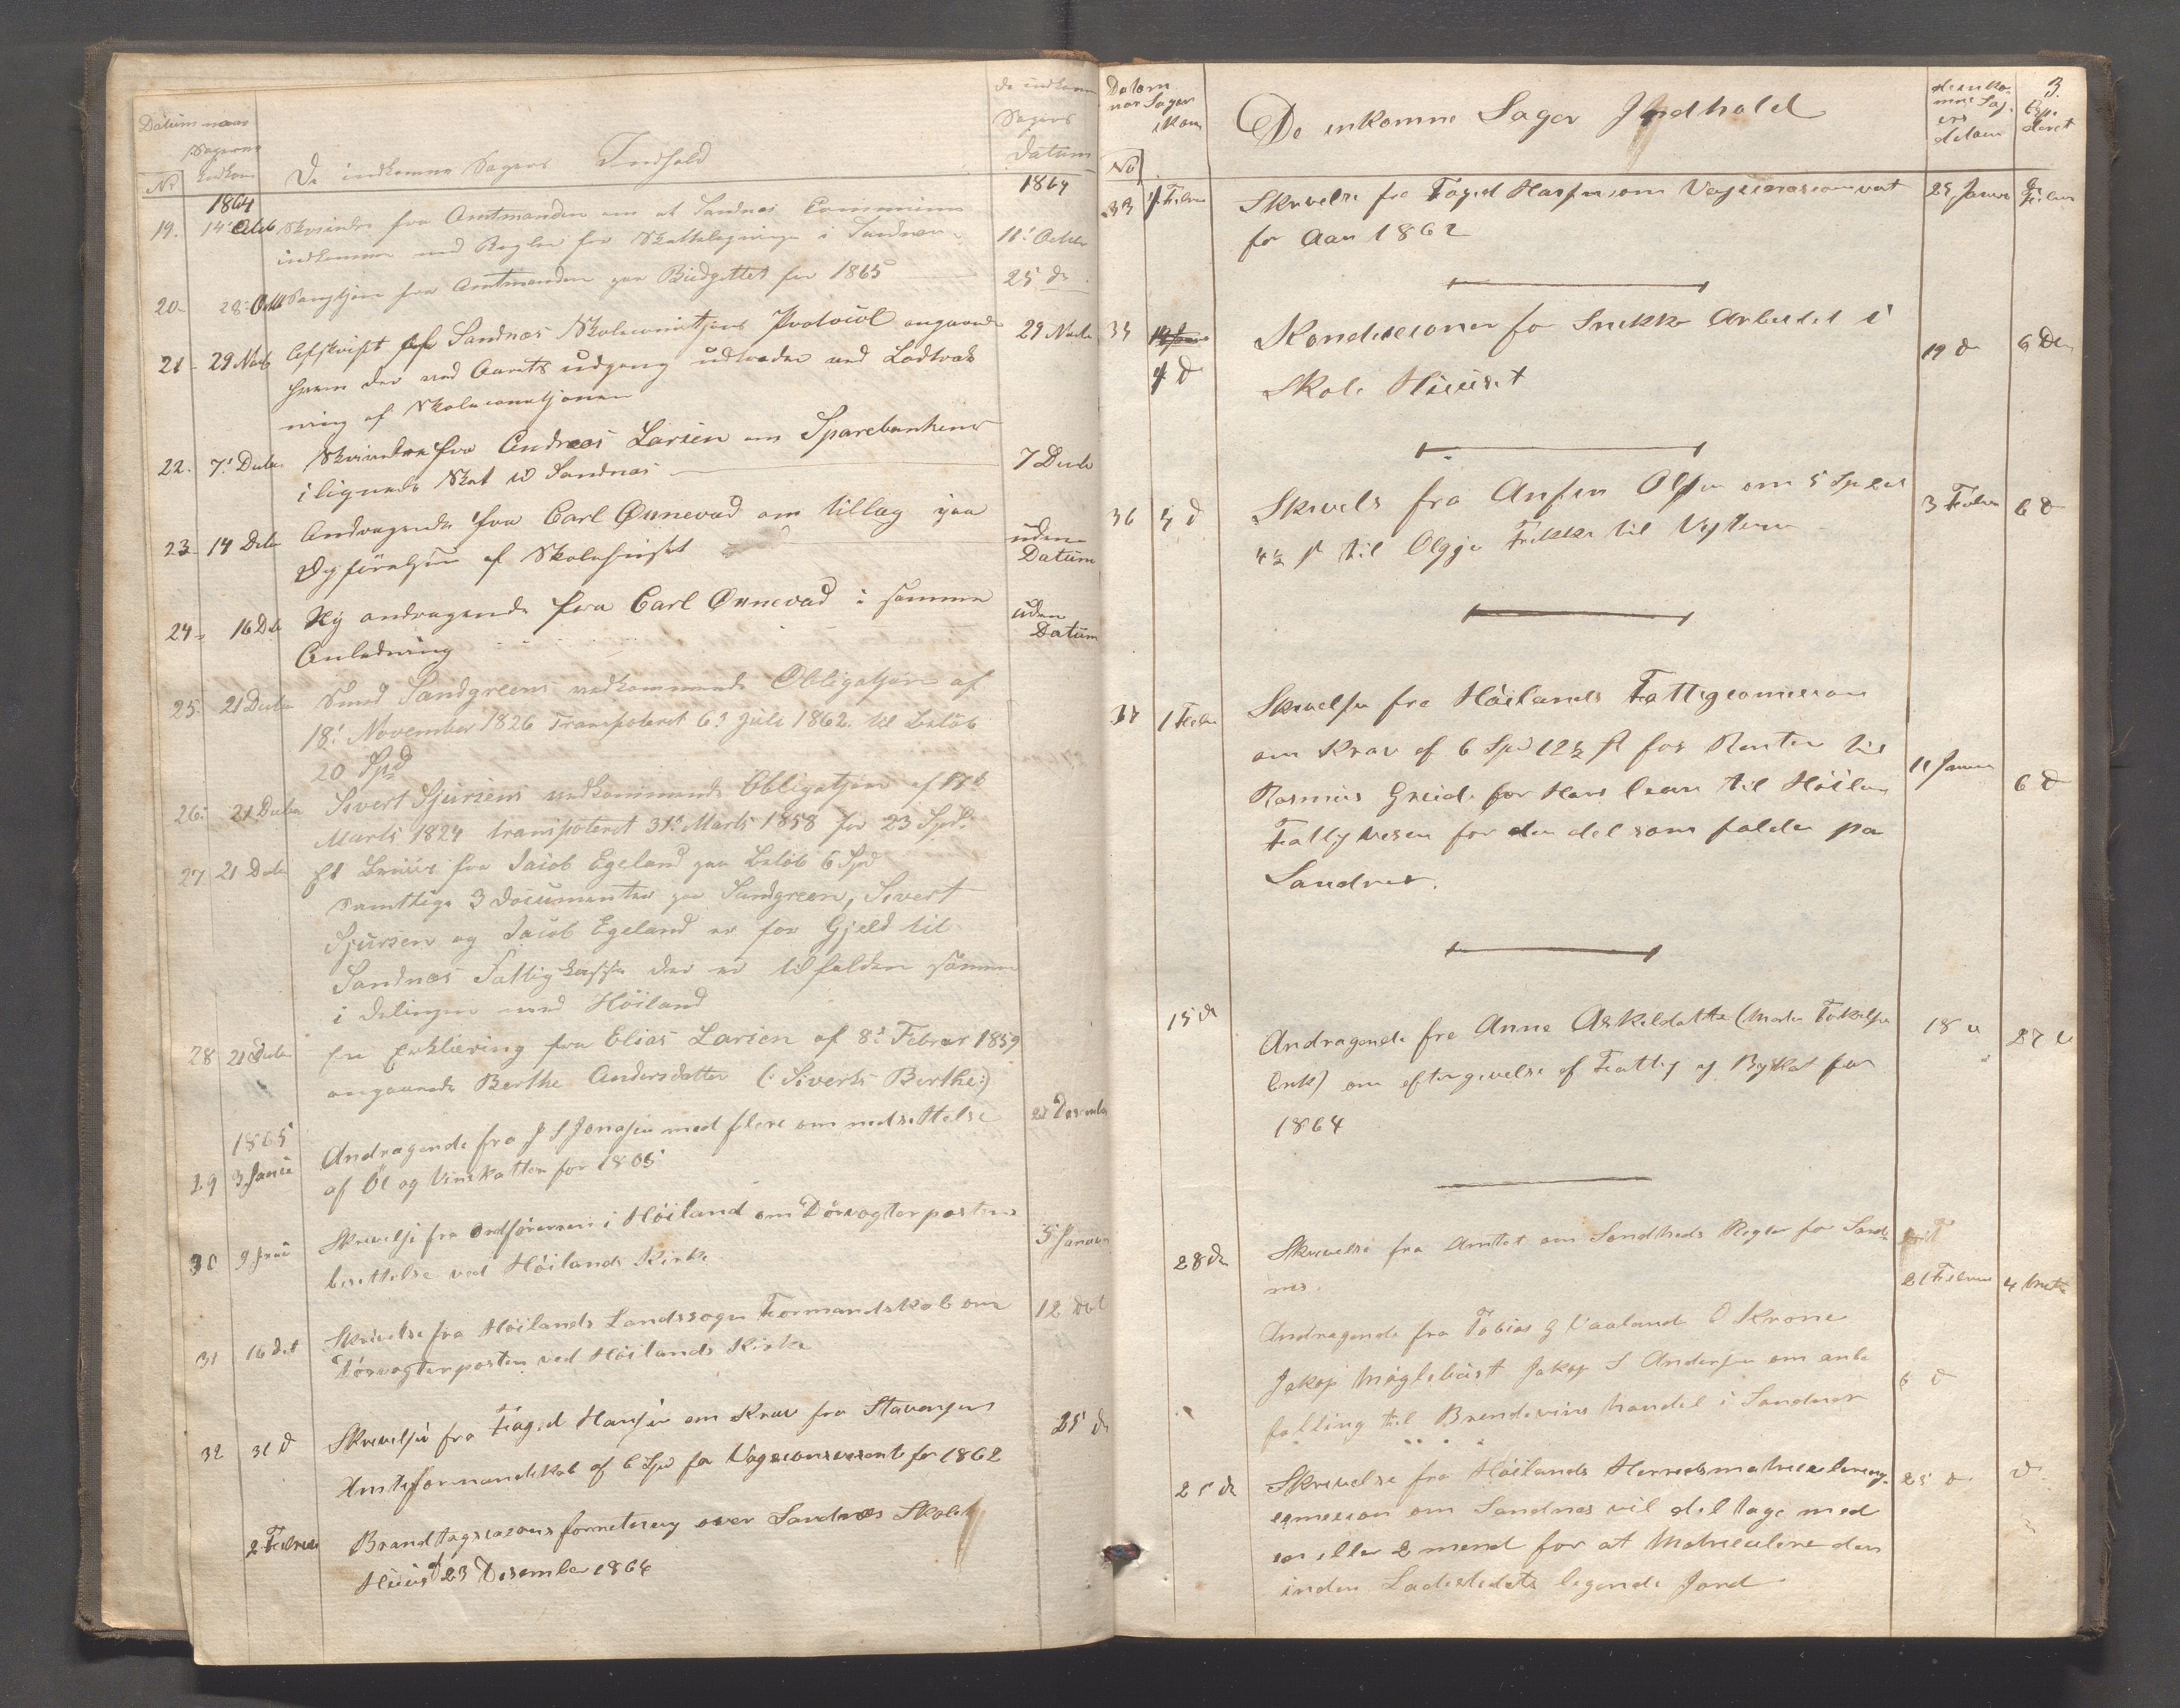 Datum naar
Sagerne
Indkom
No
De indkomne Sagers Indhold
De indkomne
Sagers
Datum
1864
1864
19. 14 Octb Skrivelse fra Amtmanden om at Sandnes Commune
indkommer med Regler for Skattelegningen i Sandnes 11' Octbr
20- 28 Octb fra Amtmanden paa Budgettet for 1865 25 d
21- 29 Novb Afskrift af Sandnes Skolecomitions Protocol angaaende 29 Novbr
hvem der ved Aarets udgang udtræder ved Lodtræk
ning af Skolecommitionen
22. 7' Decbr Skrivelse fra Andreas Larsen om Sparebankens
ilignede Skat til Sandnes 7 Decb
23- 14 Decbr Andragende fra Carl Ounevad om tillæg paa
Opførelsen af Skolehuset uden
Datum
24- 16 Deb Ny andragende fra Carl Ounevad i samme
Anledning uden
Datum
25. 21 Decbr Smed Sandgreens vedkommende Obligatjon af
18' November 1826 Transporteret 6' Juli 1862 til Beløb
20 Spd
26. 21 Decbr Sivert Sjursens vedkommende Obligatjon af
Marts 1824 transporteret 31' Marts 1858 for 23 Spd.
27 21 Deb Et Beviis fra Jacob Egeland paa Beløb 6 Spd
Samttlige 3 Documenter paa Sandgreen, Sivert
Sjursen og Jacob Egeland er for Gjeld til
Sandnes Fattigkasse der er tilfalden samme
i delingen med Höiland
28 21 Decb En Erklæring fra Elias Larsen af 8' Februar 1859
angaaende Berthe Andersdatter (: Siverts Berthe:)
1865
29 3 Janu Andragende fra J S Jonasen med flere om nedsettelse
af Öl og Vinskatten for 1865 21 Desember
30 9 Janu Skrivelse fra Ordføreren i Höiland om Dörvogterposten
besettelse ved Höilands Kirke 5 Januar
31 16 det Skrivelse fra Höilands Landssogns Formandskab om 12 det
Dörvogterposten ved Höilands Kirke
32 31 d Skrivelse fra Foged Hansen om Krav fra Stavangers 25 d
Amtsformandskab af 6 Spd for Vagsionsvesenet for 1862
2 Februar Brandtagsasions forretning over Sandnes Skole
Huus d 23 Desember 1864
Datom
nar Sager
ikom
No
De inkomne Sager Indhold
de inko
mne Sag
ers
datom
3.
Exp.
deret
33 Februar Skrivelse fra Foged Hansen om Vagsionsvesenet 25 Januar
for Aar 1862
34 4 d Kondisioner for Snekker Arbeidet i 19 d 6 D
Skole Huuset
36 4 d Skrivels fra Ansen Olsen om 5 Spd 3 Februar 6 d
til Vesten
37 1 Febr Skrivelse fra Höilands Fattigcomision
om Krav af 6 Spd 12 ½ s for Renter til
Rasmus Greide for Hans laan til Höilan 11 Januar 6 d
Fattigvesen for den del som falder pa
Sandnes.
15 d Andragende fra Anne Askildatter (Mader Tokelsen 18 d 27 d
Enk) om eftergivelse af Fattig og Byskat for
1864
28 d Skrivelse fra Amtet om Sundheds Regler for Sand
nes. 21 Februar 4 Marts
Andragende fra Tobias G Vaaland O Krone
Jakop Møglebust Jakop S Andersen om anbe
falling til Brendevins handel i Sandnes 6 d
25 d Skrivelse fra Höilands Herredsmatriculerings 25 d d
comision om Sandnes vil deltage med
en eller 2 mend for at Matriculere den
inden Ladestedets legende Jord